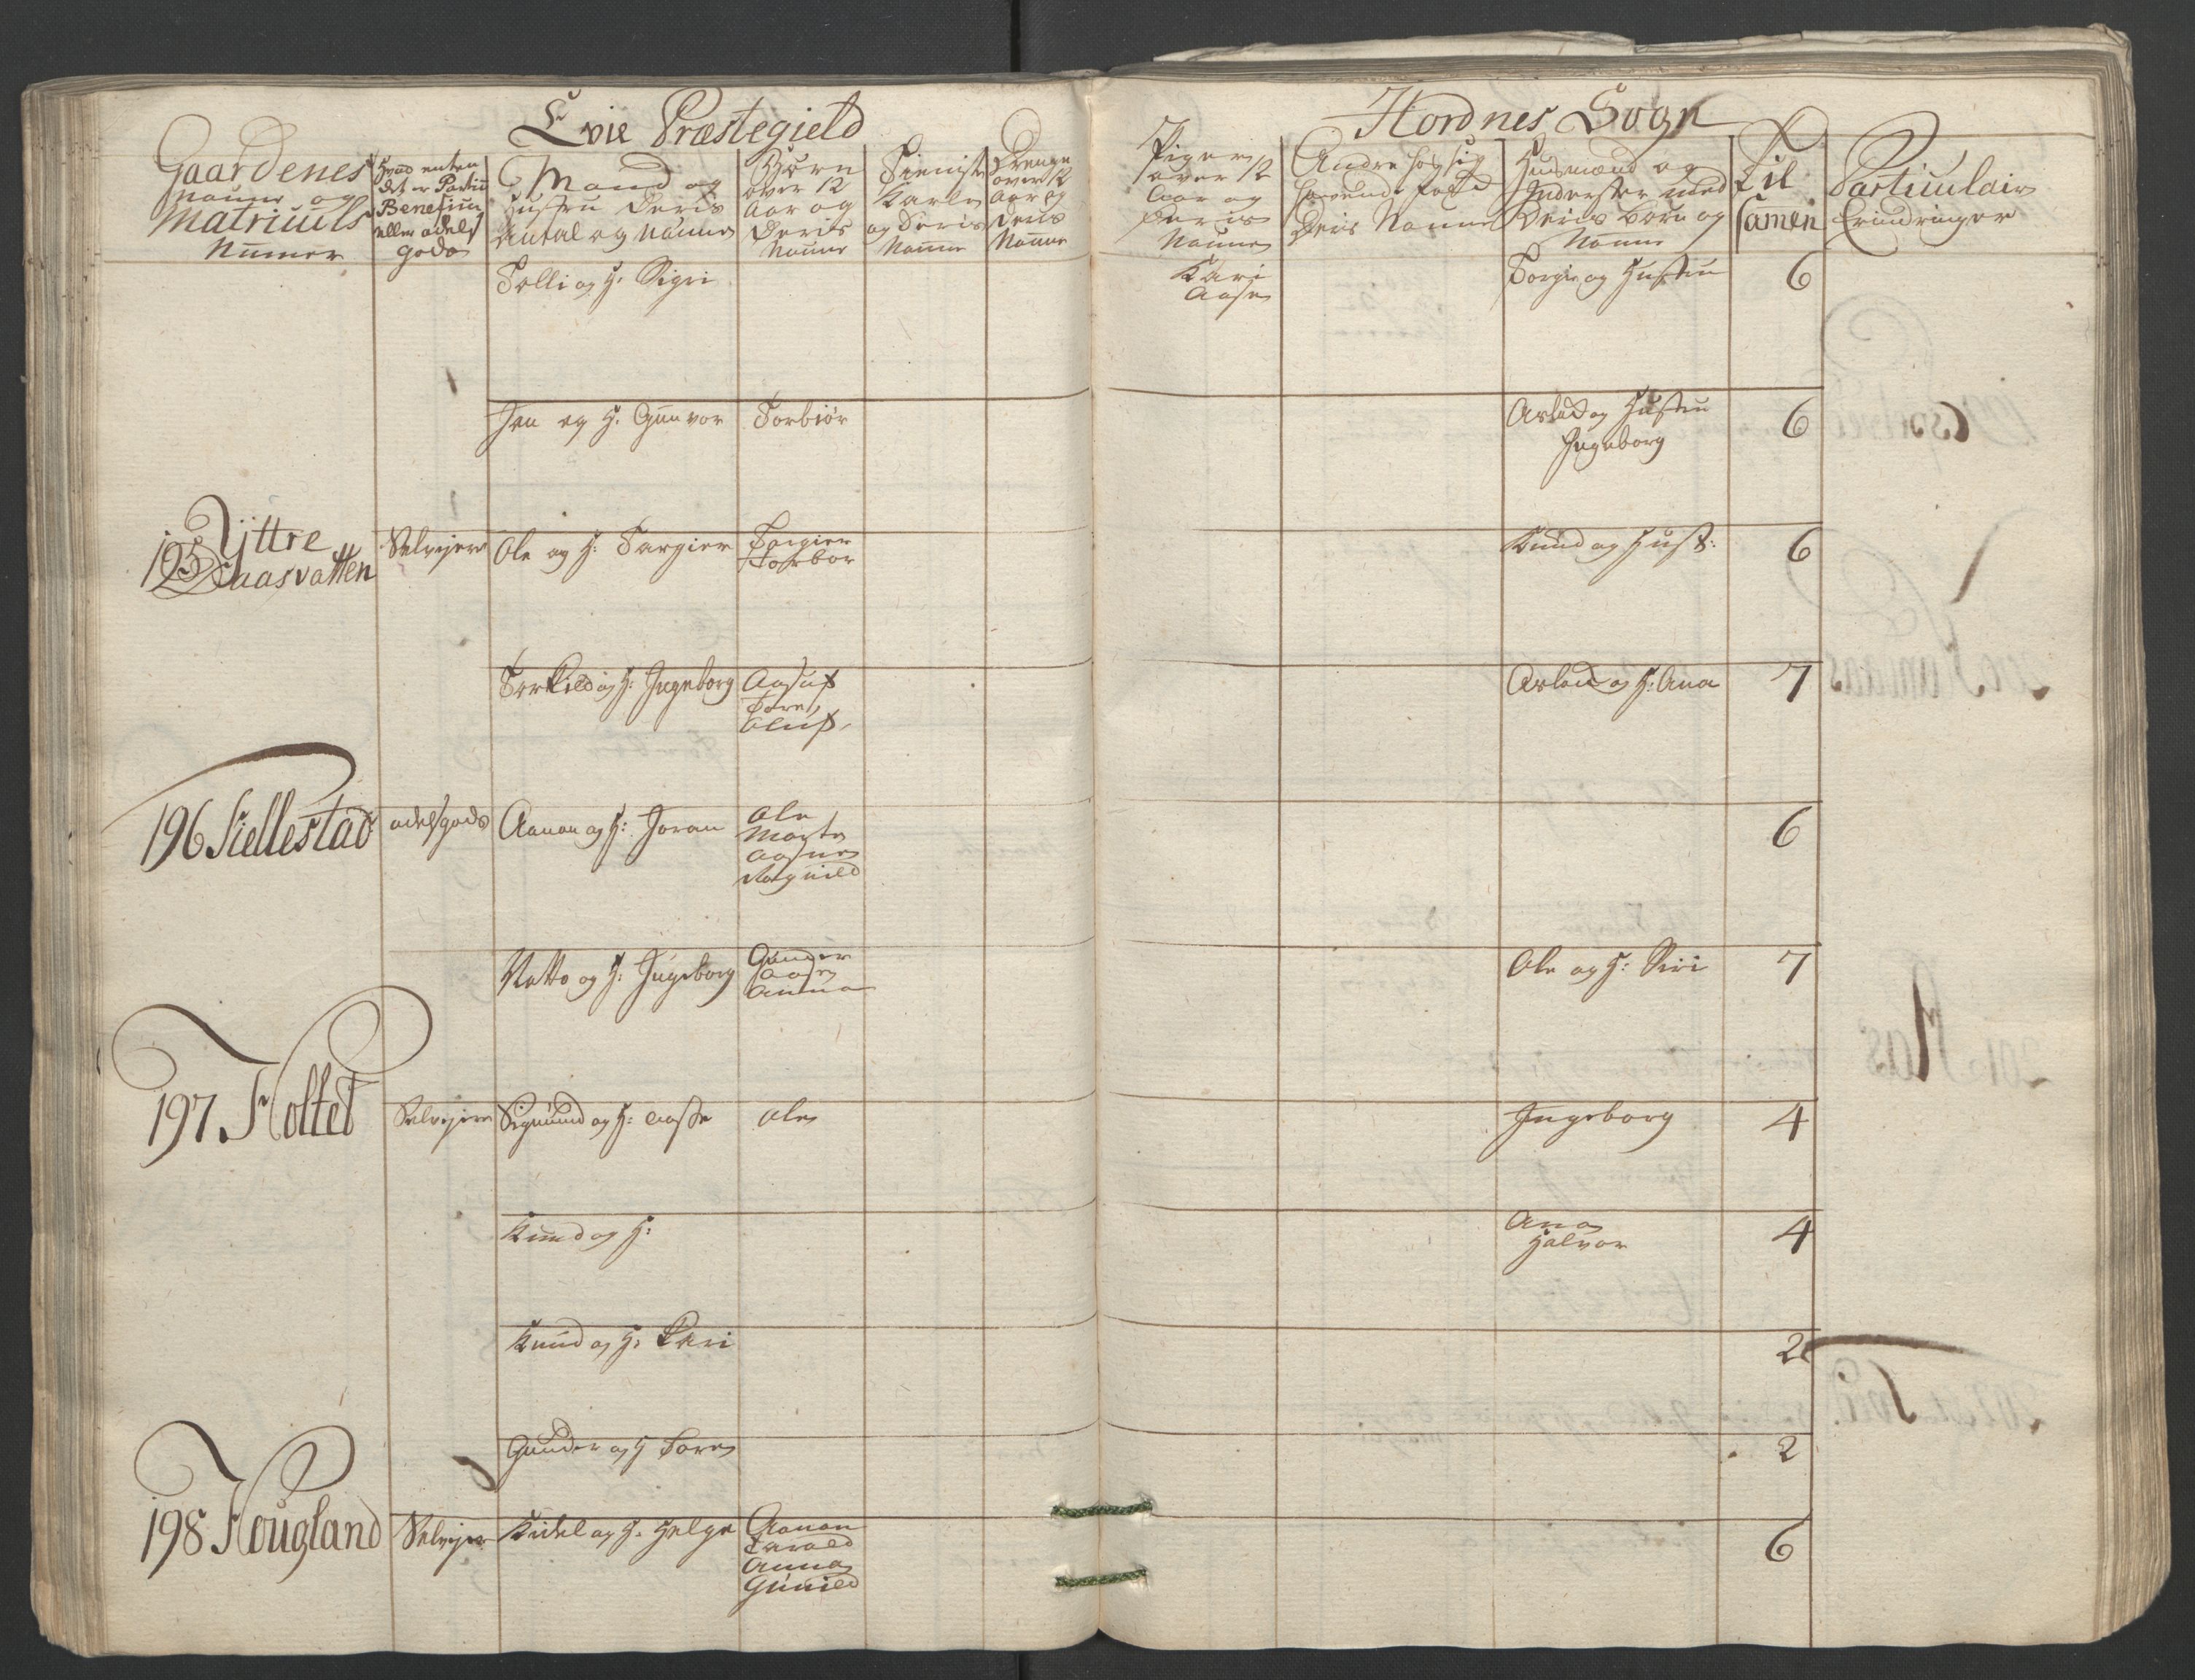 Evie Præstegield
Hordnes Sogn
Gaardenes
Naune og
Matriculs
Numer
Hvad enten
det er Particu
Benefitu
eller adels
gods
Mand og
Hustru Deris
Antal og Naune
Børn
over 12
Aar og
Deris
Naune
Tieniste
Karle
og Deris
Naune
Drenge
over 12
Aar og
Deris
Naune
Piger
over 12
Aar og
Deris
Naune
Andre hos sig
havende folk
Deris Naune
Husmænd og
Inderster med
Deris børn og
Naune
Til
samen
Particulair
Erindringer
Tolli og H. Sigri
Kari
Aase
Torgie og Hustru
6
Jen og H. Gunvor
Torbiør
Aslad og Hustru
Ingeborg
6
195 Yttre
Daasvatten
Selvejer
Ole og H: Targier
Torgier
Torbor
Knud og Hust:
6
Torkild og H: Ingeborg
Aasuf
Tore,
Oluf,
Aslac og H: Ana
7
196 Kiellestad
adelsgods
Aanon og H: Joran
Ole
Marte
Aasne
Ragnild
6
Natto og H: Ingeborg
Gunder
Aase
Anna
Ole og H: Siri
7
197 Holtet
Selvejer
Sigmund og H: Aasse
Ole
Ingeborg
4
Knud og H:
Ana
Halvor
4
Knud og H: Kari
2
Gunder og H Tore
2
198 Hougland
Selvejer
Kidel og H. Helge
Aanon
Tarald
Anna
Gunild
6